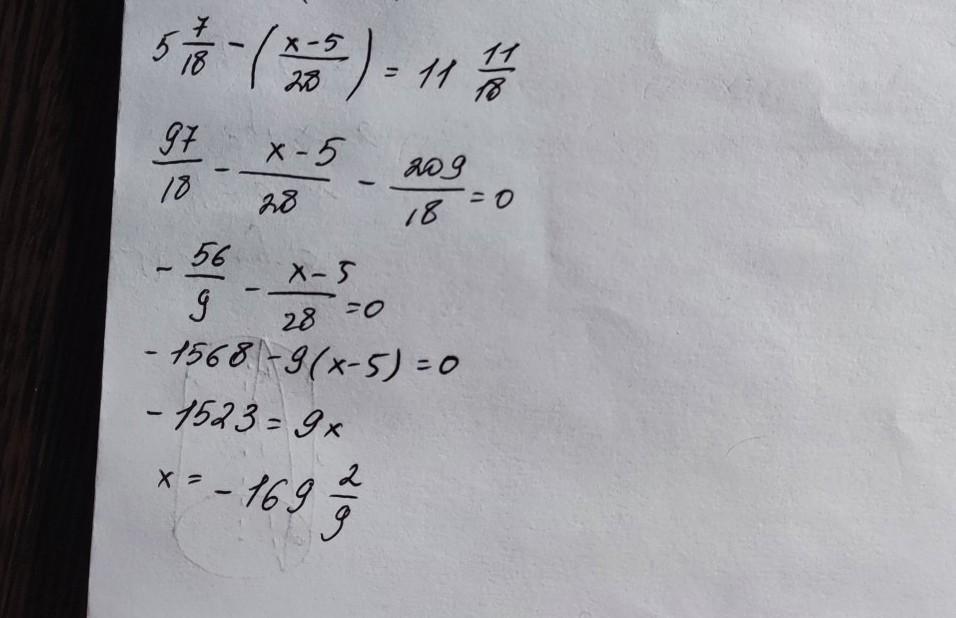 5 7/18 - ( x-5 / 28 ) = 11 11/18
97/18 - x-5/28 - 209/18 = 0
- 56/9 - x-5/28 = 0
- 1568 - 9(x-5) = 0
- 1523 = 9x
x = - 169 2/9